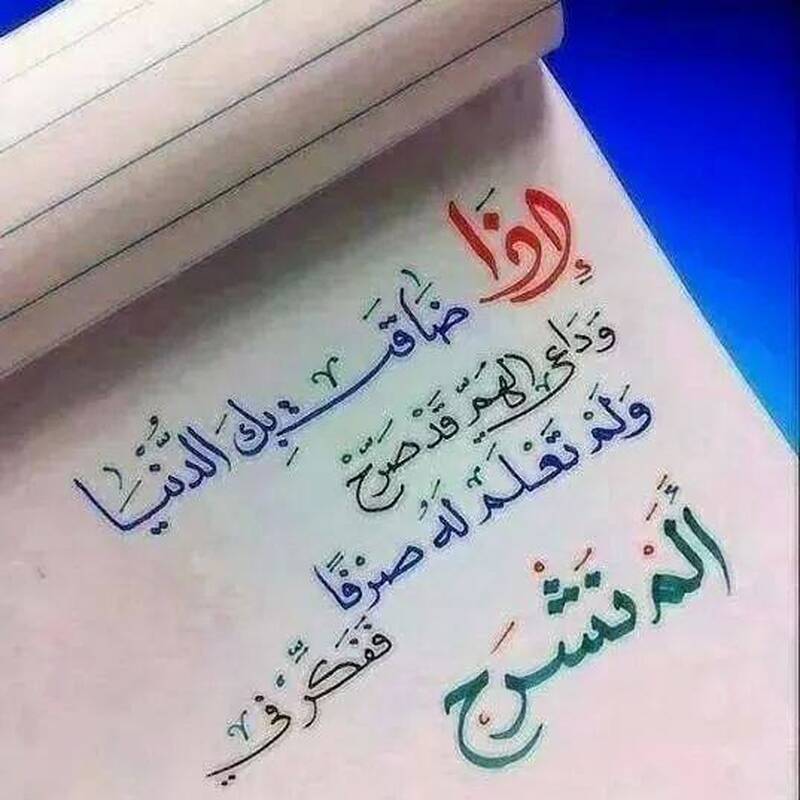 إِذَا
ضَاقَتْ بِكَ الدُّنْيَا
وَدَاعِي الهَمِّ قَدْ صَرَّحْ
وَلَمْ تَعْلَمْ لَهُ صَرْفًا
فَفَكِّرْ فِي
أَلَمْ نَشْرَحْ